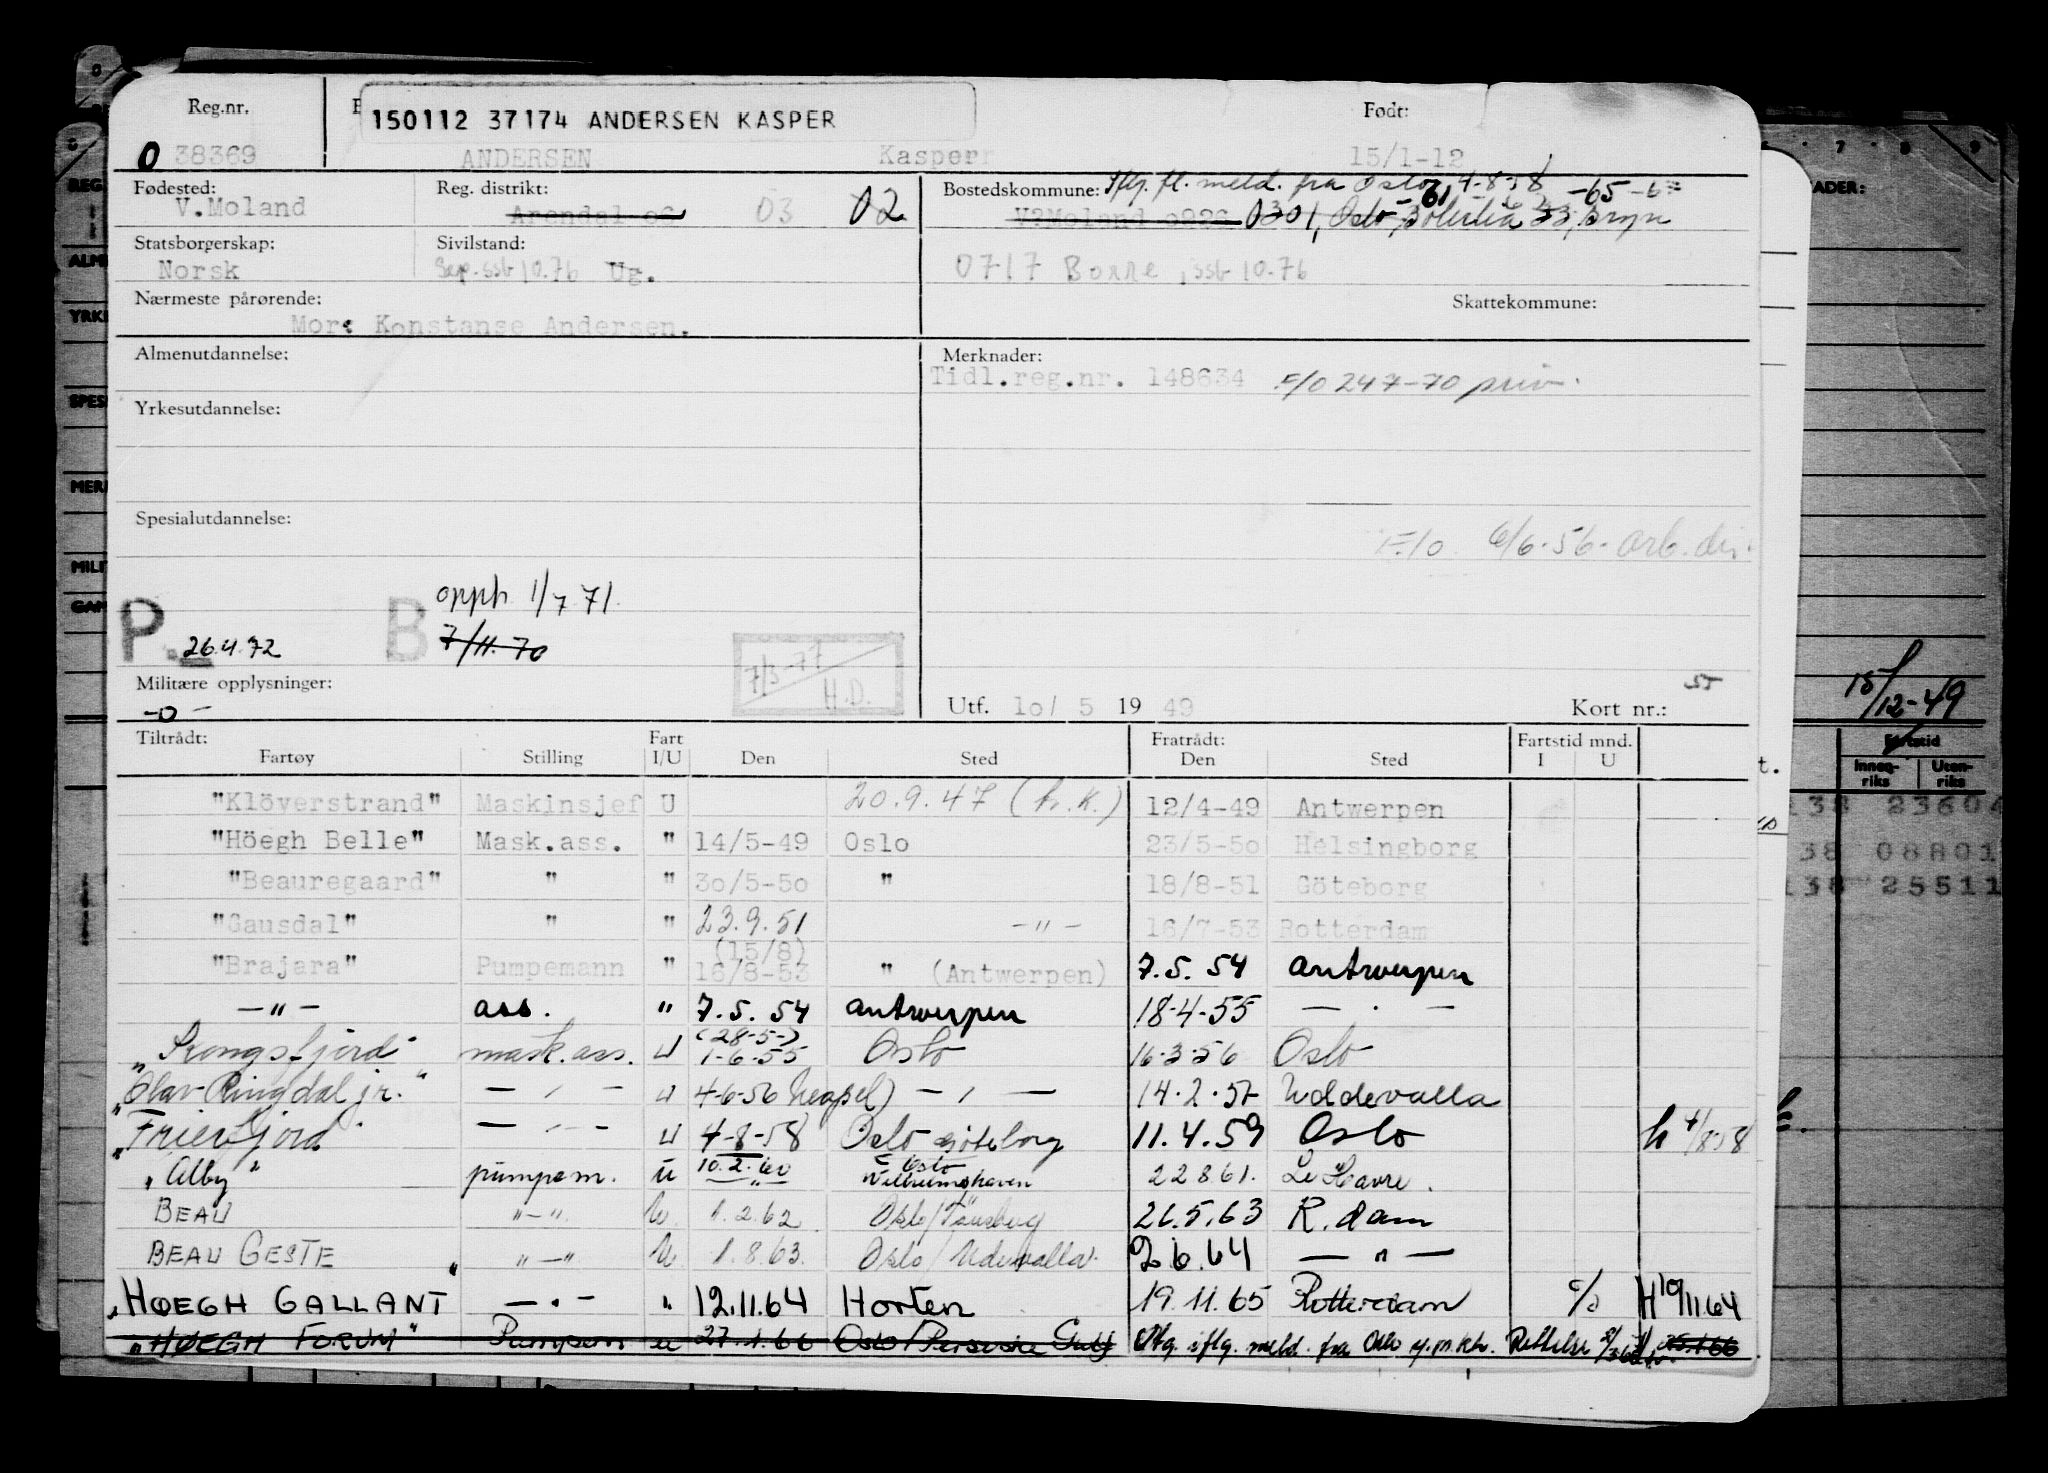 Reg.nr.
150112 37174 ANDERSEN KASPER
Født:
0 38369 ANDERSEN Kasper 15/1-12
Fødested: Reg. distrikt: Bostedskommune: Iflg. fl. meld. fra Oslo 4-8-58 -65
V.Moland Arendal 03 02 V?Moland 0301, Oslo, 33, Bryn
Statsborgerskap: Sivilstand:
Norsk Sep. ssb 10.76 Ug. 0717 Borre, ssb 10-76
Nærmeste pårørende: Skattekommune:
Mor: Konstanse Andersen.
Almenutdannelse: Merknader:
Tidl.reg.nr. 148634 F/O 247-70 priv.
Yrkesutdannelse:
Spesialutdannelse:
F/O 6/6-56- Arb. dir.
opph 1/7 71.
P. 26.4.72 B 7/11. 70
7/3-77 H.D.
Militære opplysninger:
-0- Utf. 10/ 5 19 49 Kort nr.:
15/12-49
Tiltrådt: Fart Fratrådt: Fartstid mnd.
Fartøy Stilling I/U Den Sted Den Sted I U
"Klöverstrand" Maskinsjef U 20.9.47 (h.k.) 12/4-49 Antwerpen
"Höegh Belle" Mask.ass. " 14/5-49 Oslo 23/5-50 Helsingborg
"Beauregaard" " " 30/5-50 " 18/8-51 Göteborg
"Gausdal" " " 23.9.51 -"- 16/7-53 Rotterdam
"Brajara" Pumpemann " (15/8) 16/8-53 " (Antwerpen) 7.5.54 Antwerpen
-"- ass. " 7.5.54 Antwerpen 18-4-55 - . -
"Kongsfjord" mask.ass. U (28-5-) 1-6-55 Oslo 16-3-56 Oslo
"Olav Ringdal jr." - " - U 4-6-56 Neapel) - " - 14.2.57 Uddevalla
"Frierfjord" - " - U 4-8-58 Oslo Göteborg 11.4.59 Oslo h 4/8-58
"Alby" pumpem. U 10.2.60 Oslo Wilhelmshaven 22861. Le Havre.
BEAU "-" U. 1.2.62 Oslo/Tönsberg 26.5.63 R.dam
BEAU GESTE "-" U 1.8.63. Oslo/Uddevalla. 2.6.64 - " -
"HØEGH GALLANT" - " - " 12.11.64 Horten 19.11.65 Rotterdam H 10/11 64
"HØEGH FORUM" Pumpem u 27.1.66 Oslo/Persiske Gulf Utg. iflg. meld. fra Oslo Rettelse
REG
ALM
YRKE
SPES
MERK
MILIT
7 8 9
Innen-riks Uten-riks
138 23604
138 08801
138 25511